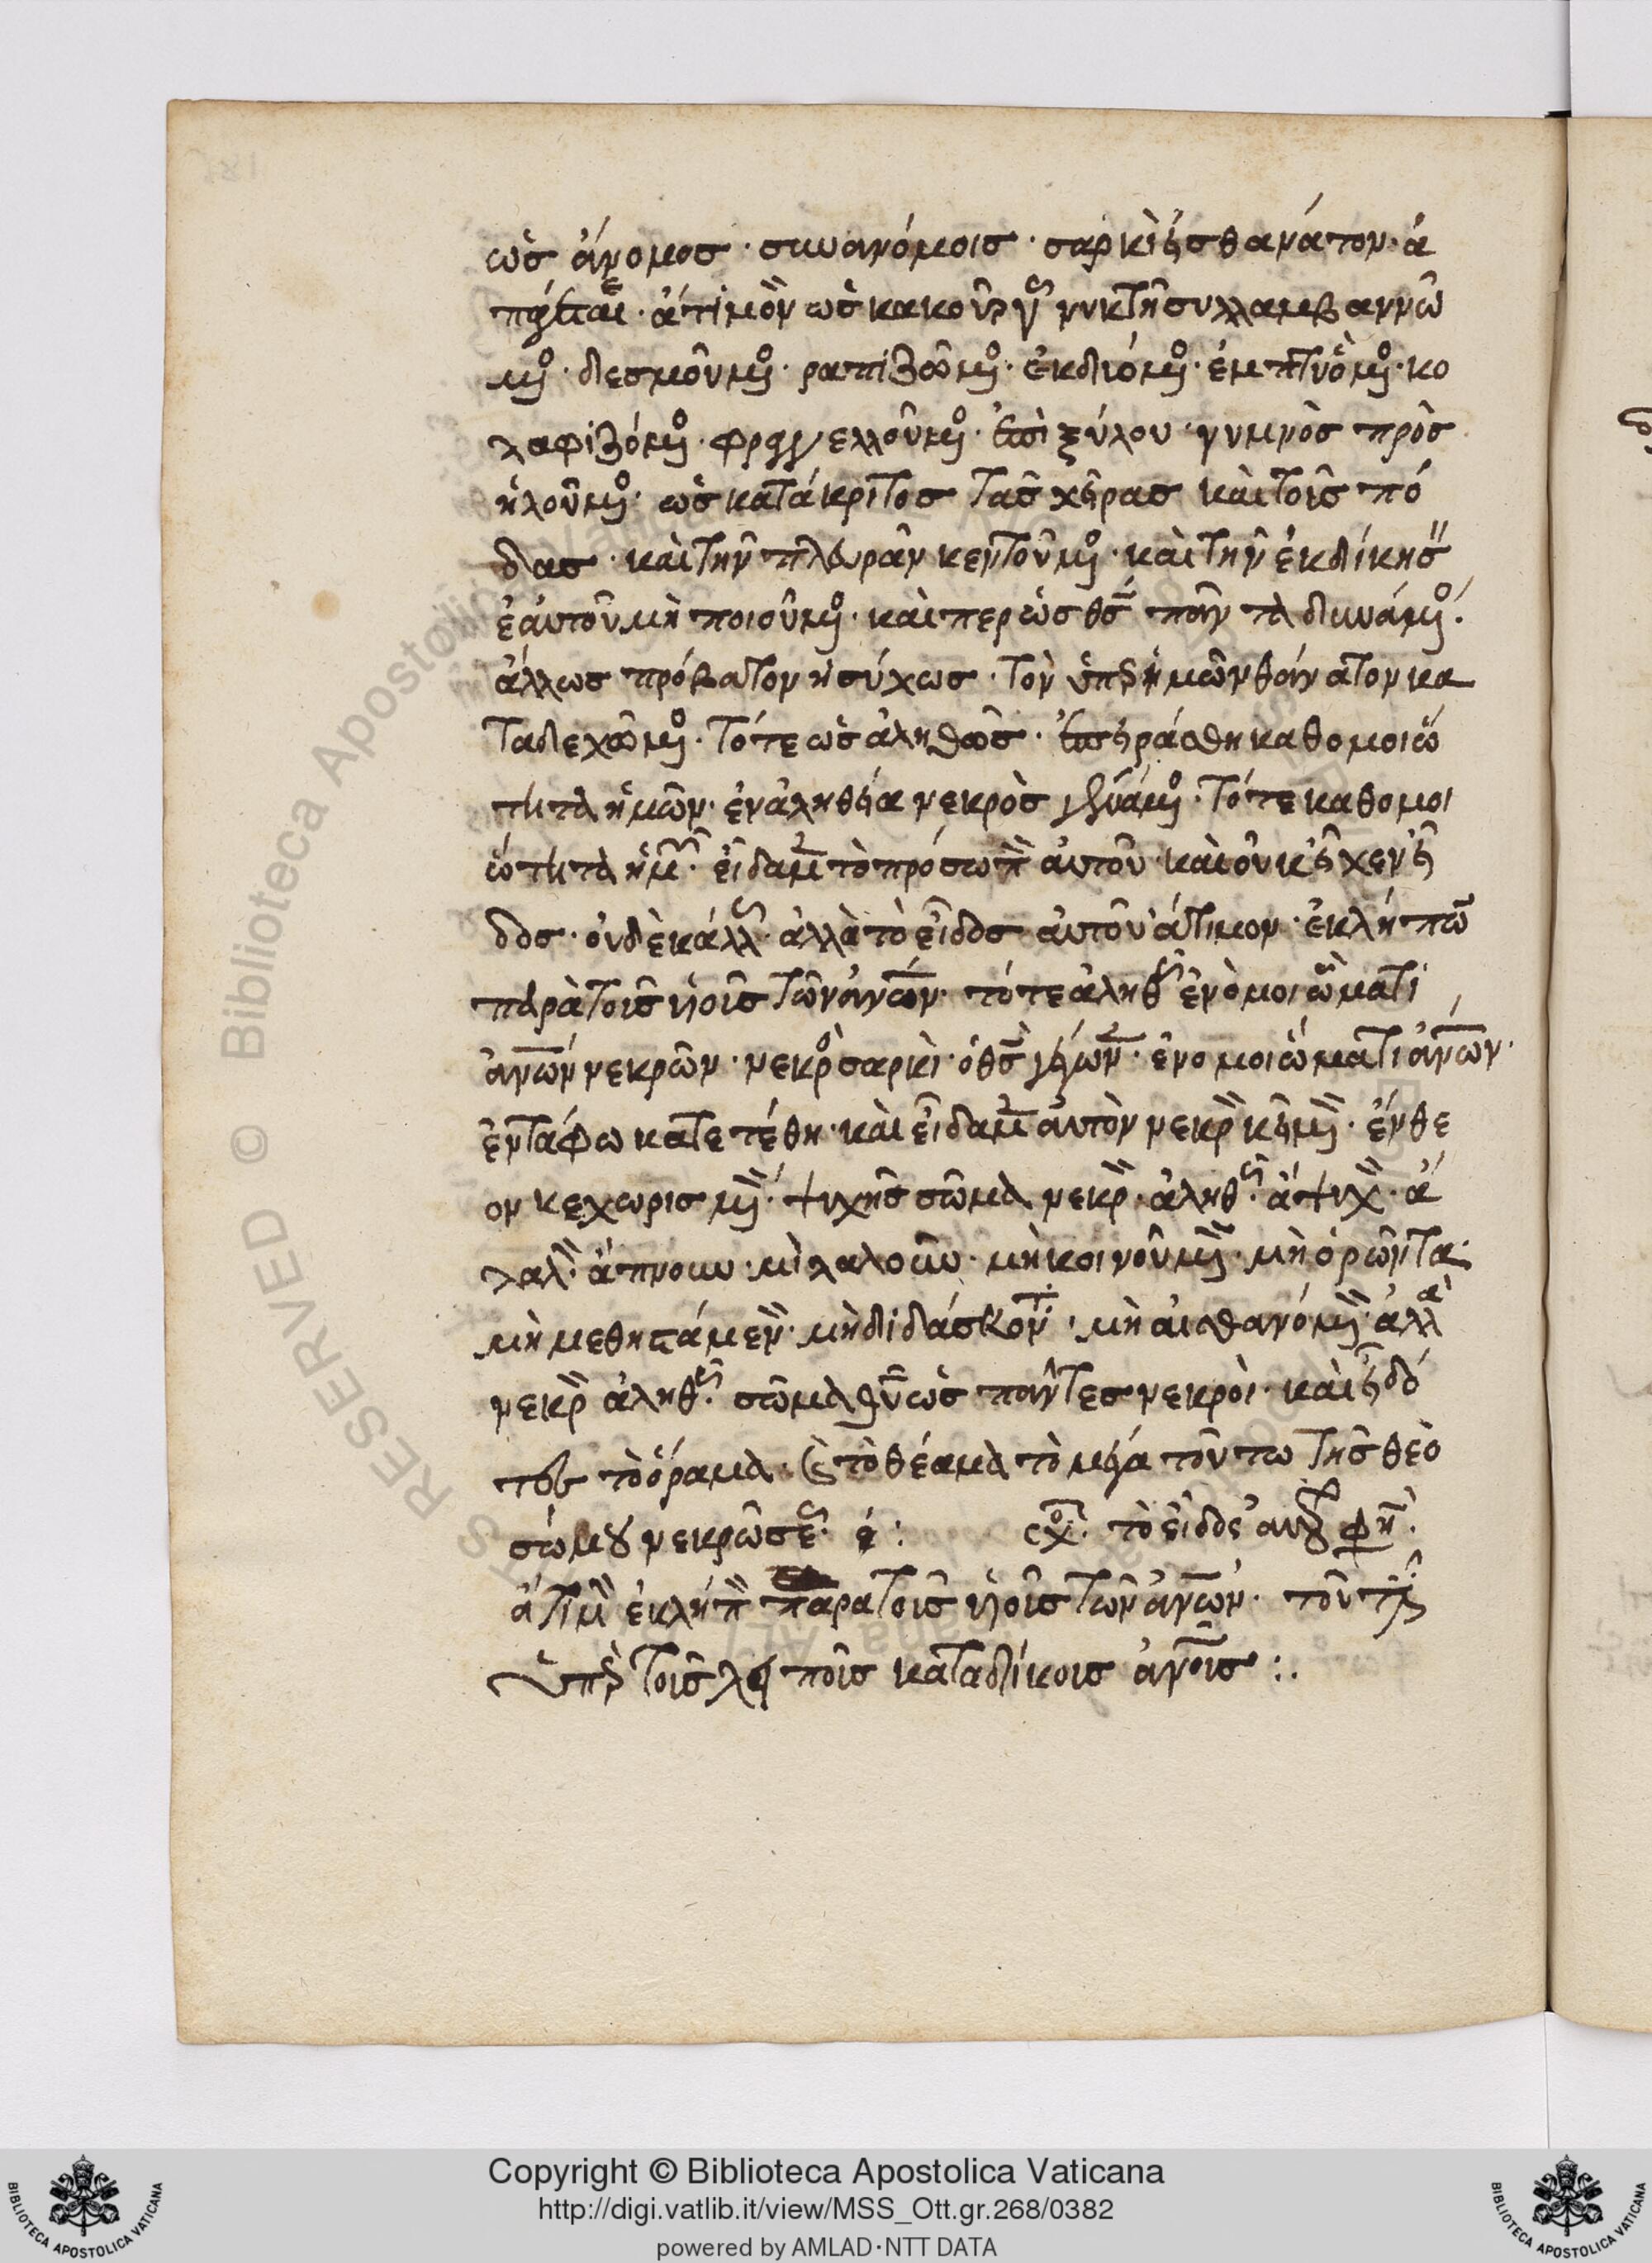 ὡς ἄνομος · συν ανόμοις · σαρκὶ εἰς θανατον · ἀ
πάγεται · ἄτιμον ὡς κακοῦργος νυκτὶ συλλαμβανννῶ
μενος · δεσμοῦμενος · ραπιζῶμενος · ἐκδυόμενος · ἐμπτυόμενος · κο
λαφιζόμενος · φραγγελλοῦμενος · ἐπὶ ξύλου · γυμνὸς πρὸσ
ηλοῦμενος · ὡς κατάκριτος τὰς χεῖρας καὶ τοὺς πό
δας · καὶ τὴν πλευρὰν κεντοῦμενος · καὶ τὴν ἐκδίκησιν
ἑαυτοῦ μὴ ποιοῦμενος · καὶ περ ὡς θς πάντα δυνάμενος ·
ἀλλ ως πρόβατον ἡσύχως · τὸν ὑπὲρ ἡμῶν θάνατον κα
ταδεχῶμενος · τότε ὡς ἀληθῶς · ἐπειράσθη καθομοιώ
τητα ἡμῶν · ἐν ἀληθεία νεκρὸς γενάμενος · τότε καθομοι
ώτητα ἡμῶν · εἴδαμεν τὸ πρόσωπον αὐτοῦ · καὶ οὐκ εἶχεν εἶ
δος · οὐδὲ κάλλος · ἀλλὰ τὸ εἶδος αὐτοῦ ἄτιμον · ἐκλήπων
παρὰ τοὺς υἱοὺς τῶν ἀνων · τότε ἀληθῶς ἐν ὁμοιώματι
ἀνων νεκρῶν · νεκρὸς σαρκὶ · ὁ θς γέγων · ἐν ομοιώματι ἀνων ·
ἐν τάφω κατετέθη · καὶ εἴδαμεν αὐτὸν νεκρὸν κείμενον · ἔνθε
ον κεχωρισμένον · ψυχῆς σῶμα νεκρὸν · ἀληθῶς · ἄψυχον · ἄ
λαλον · ἄπνουν · μὴ λαλοῦν · μὴ κοινούμενον · μὴ ὁρῶντα ·
μὴ μεθηστάμενον · μὴ διδάσκοντα · μὴ αισθανόμενον · ἀλλὰ
νεκρὸν ἀληθῶς · σῶμα ὡς πάντες νεκροὶ · καὶ εἰδό
τος τὸ ὅραμα · καὶ τὸ θέαμα τὸ μέγα τοῦτω τῆς θεο
σώμου νεκρώσεως · ε :       σχο. τὸ εἶδος αὐτοῦ φη ·
ἄτιμον ἐκλήπον παρα τοὺς υἱοὺς τῶν ἀνων · τοῦτέστιν
ὑπὲρ τοὺς λοιποὺς καταδίκους ἀνους :.
Copyright © Biblioteca Apostolica Vaticana
http://digi.vatlib.it/view/MSS_Ott.gr.268/0382
powered by AMLAD·NTT DATA